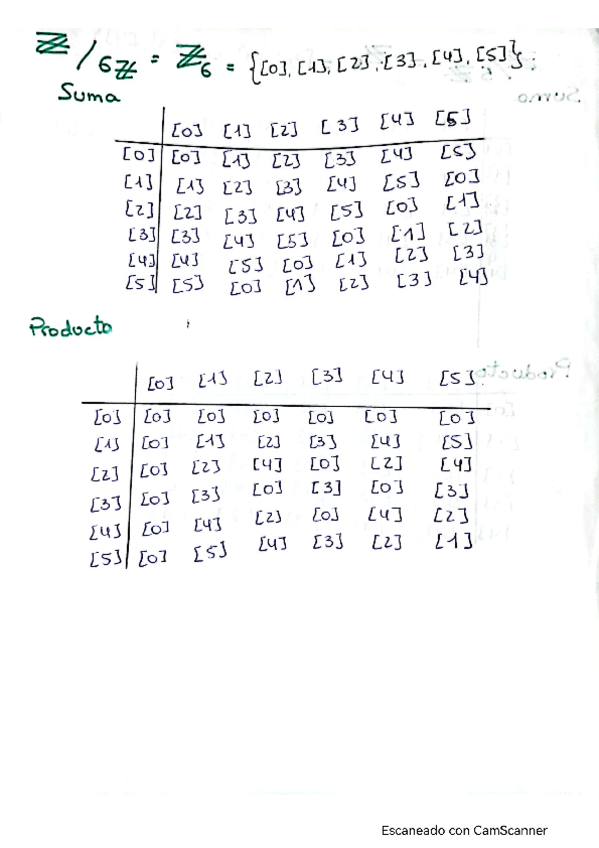 ℤ/6ℤ = ℤ6 = {[0], [1], [2], [3], [4], [5]}.
Suma
[0] [1] [2] [3] [4] [5]
[0] [0] [1] [2] [3] [4] [5]
[1] [1] [2] [3] [4] [5] [0]
[2] [2] [3] [4] [5] [0] [1]
[3] [3] [4] [5] [0] [1] [2]
[4] [4] [5] [0] [1] [2] [3]
[5] [5] [0] [1] [2] [3] [4]
Producto
[0] [1] [2] [3] [4] [5]
[0] [0] [0] [0] [0] [0] [0]
[1] [0] [1] [2] [3] [4] [5]
[2] [0] [2] [4] [0] [2] [4]
[3] [0] [3] [0] [3] [0] [3]
[4] [0] [4] [2] [0] [4] [2]
[5] [0] [5] [4] [3] [2] [1]
Escaneado con CamScanner